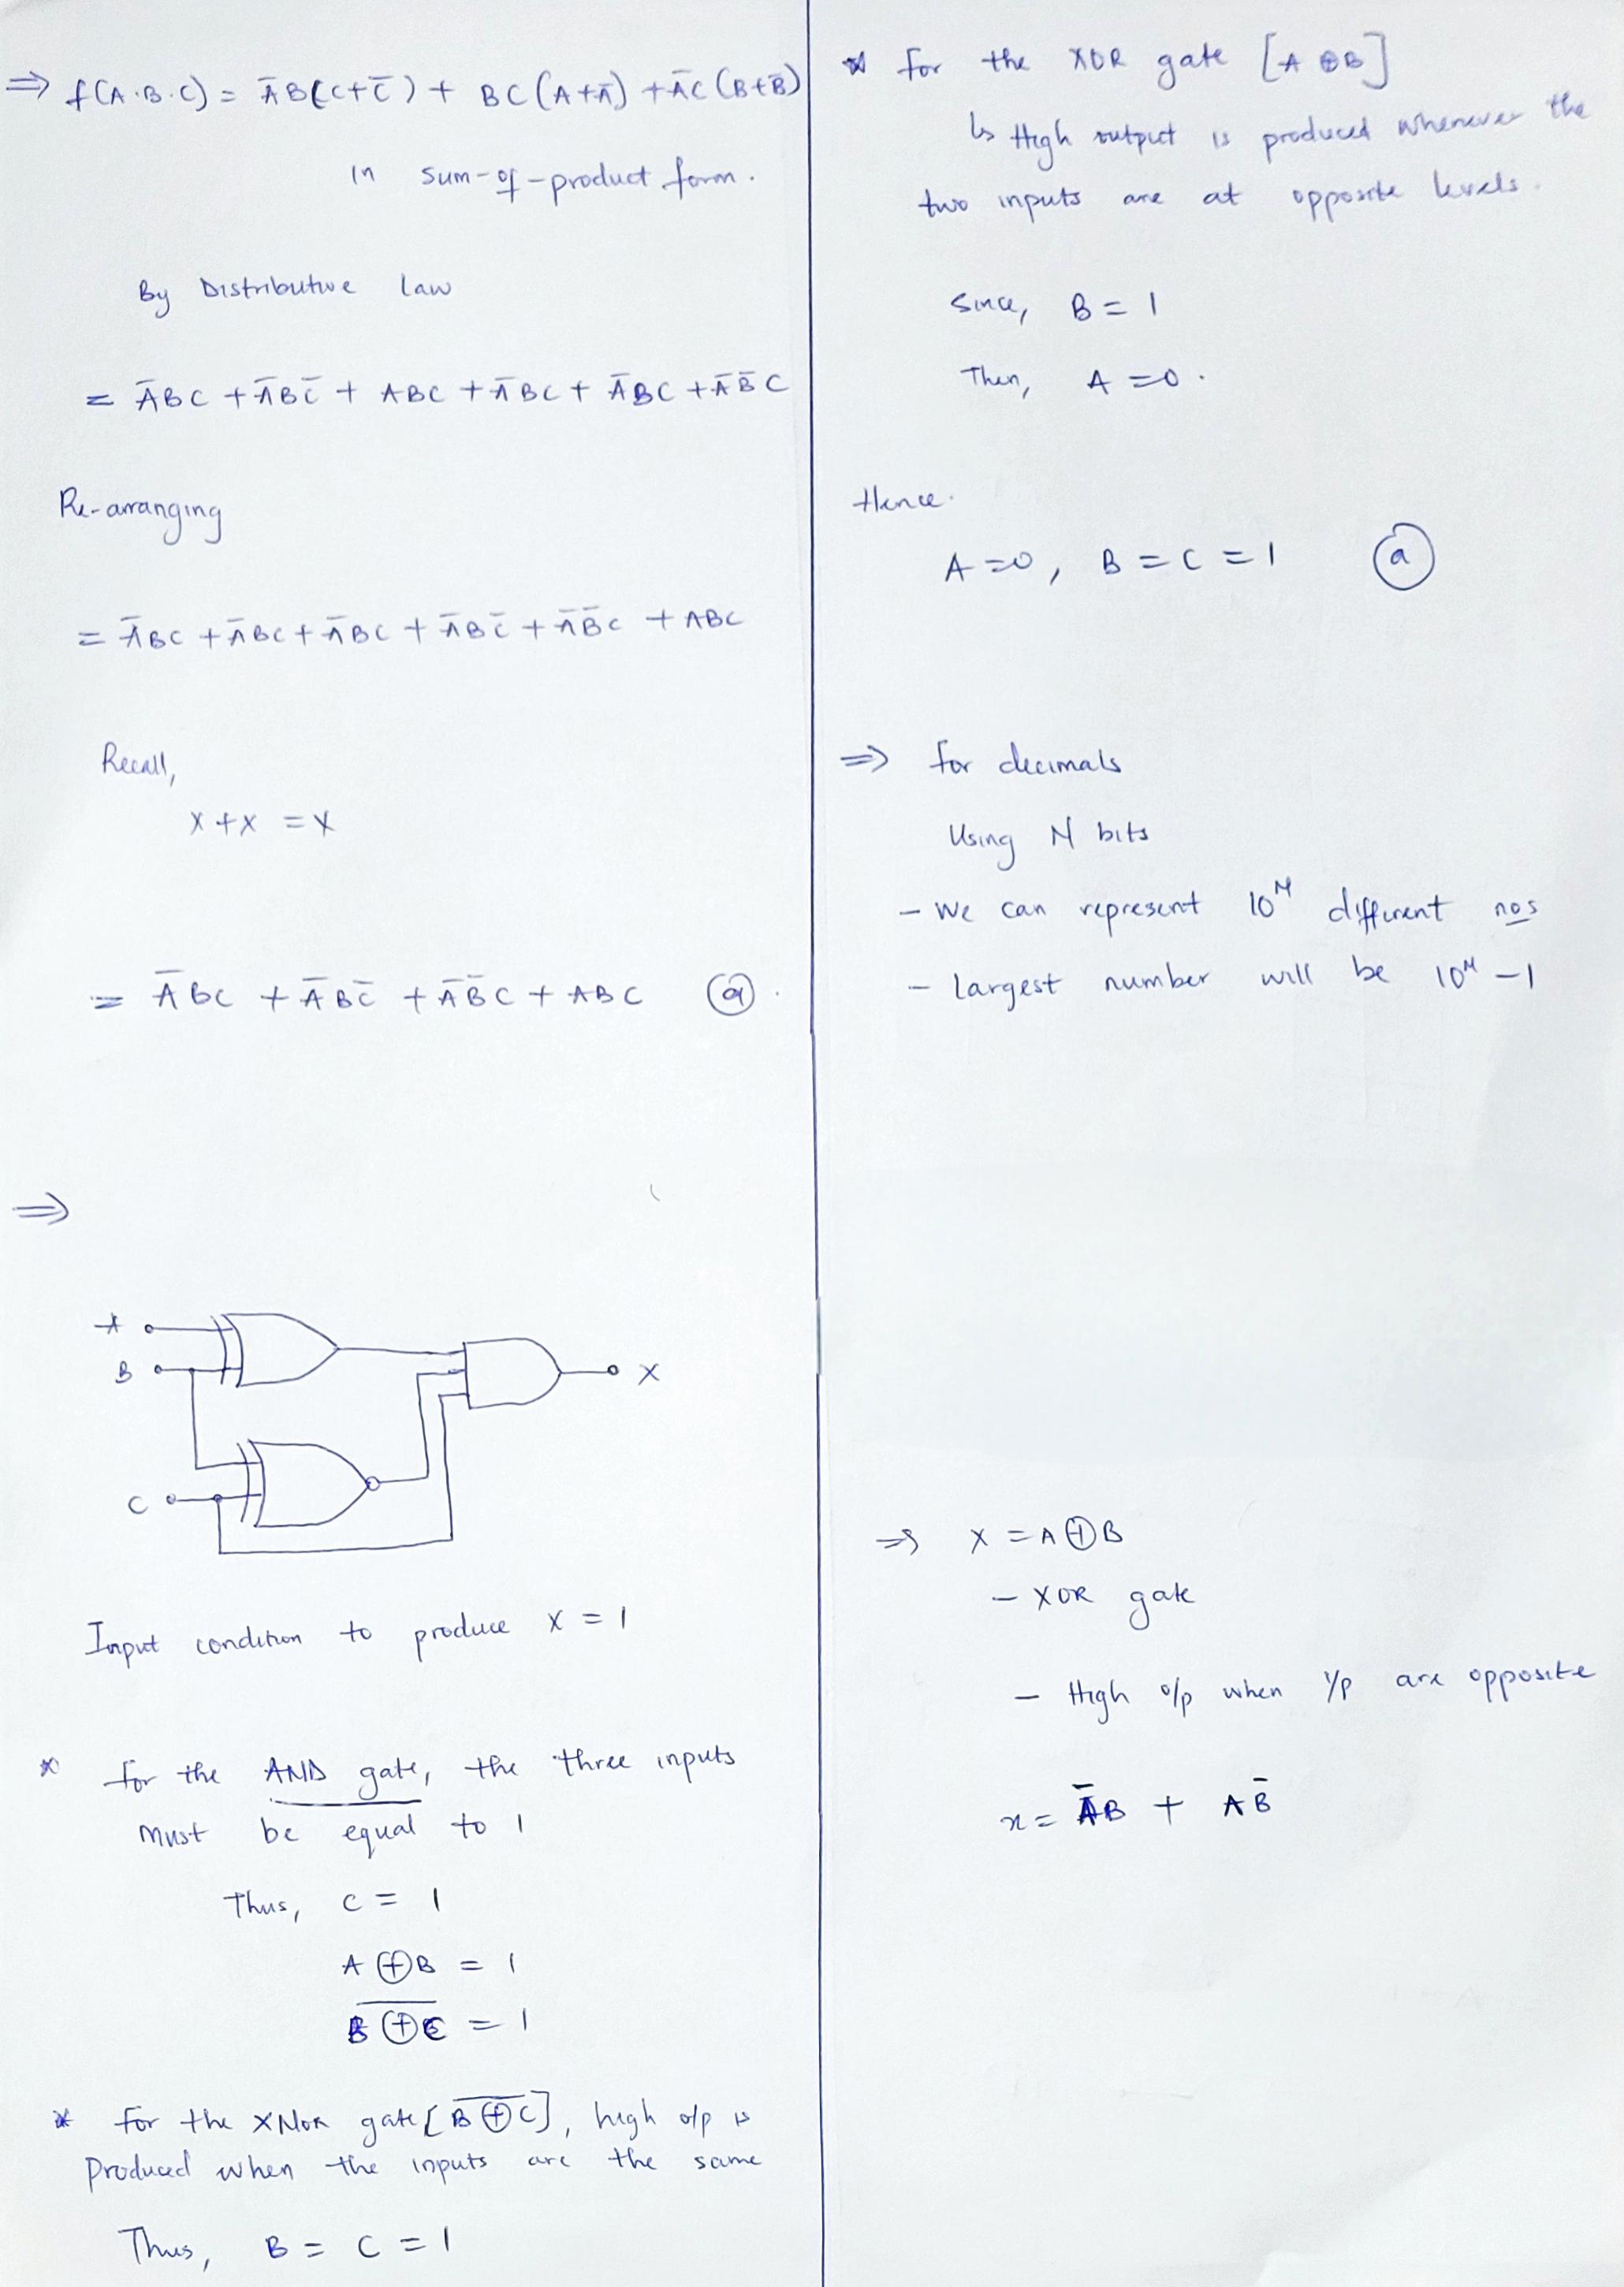 ⇒ f(A·B·C) = A̅B(C+C̅) + BC(A+A̅) + A̅C(B+B̅)
in sum-of-product form.
By Distributive law
= A̅BC + A̅BC̅ + ABC + A̅BC + A̅BC + A̅B̅C
Re-arranging
= A̅BC + A̅BC + A̅BC + A̅BC̅ + A̅B̅C + ABC
Recall,
X + X = X
= A̅BC + A̅BC̅ + A̅B̅C + ABC (a).
⇒
A
B
X
C
Input condition to produce X = 1
* for the AND gate, the three inputs
must be equal to 1
Thus, C = 1
A ⊕ B = 1
B̅ ⊕̅ C̅ = 1
* for the XNOR gate [B̅ ⊕̅ C̅], high o/p is
produced when the inputs are the same
Thus, B = C = 1
* for the XOR gate [A ⊕ B]
↳ High output is produced whenever the
two inputs are at opposite levels.
Since, B = 1
Then, A = 0.
Hence.
A = 0, B = C = 1 (a)
⇒ for decimals
Using N bits
- We can represent 10ᴺ different nos
- largest number will be 10ᴺ - 1
⇒ X = A ⊕ B
- XOR gate
- High o/p when i/p are opposite
x = A̅B + AB̅